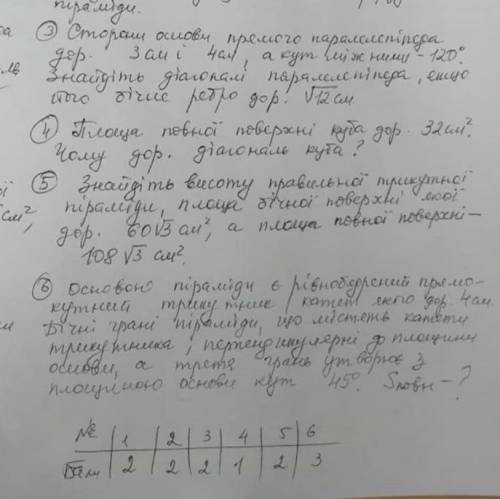 піраміди.
③ Сторони основи прямого паралелепіпеда
дор. 3 см і 4 см, а кут між ними - 120°.
Знайдіть діагоналі паралелепіпеда, якщо
його бічне ребро дор. √12 см
④ Площа повної поверхні куба дор. 32 см².
Чому дор. діагональ куба?
⑤ Знайдіть висоту правильної трикутної
піраміди, площа бічної поверхні якої
см², дор. 60√3 см², а площа повної поверхні -
108√3 см².
⑥ Основою піраміди є рівнобедрений прямо-
кутний трикутник, катет якого дор. 4 см.
Бічні грані піраміди, що містять катети
трикутника, перпендикулярні до площини
основи, а третя грань утворює з
площиною основи кут 45°. Sповн - ?
№ 1 2 3 4 5 6
Бали 2 2 2 1 2 3